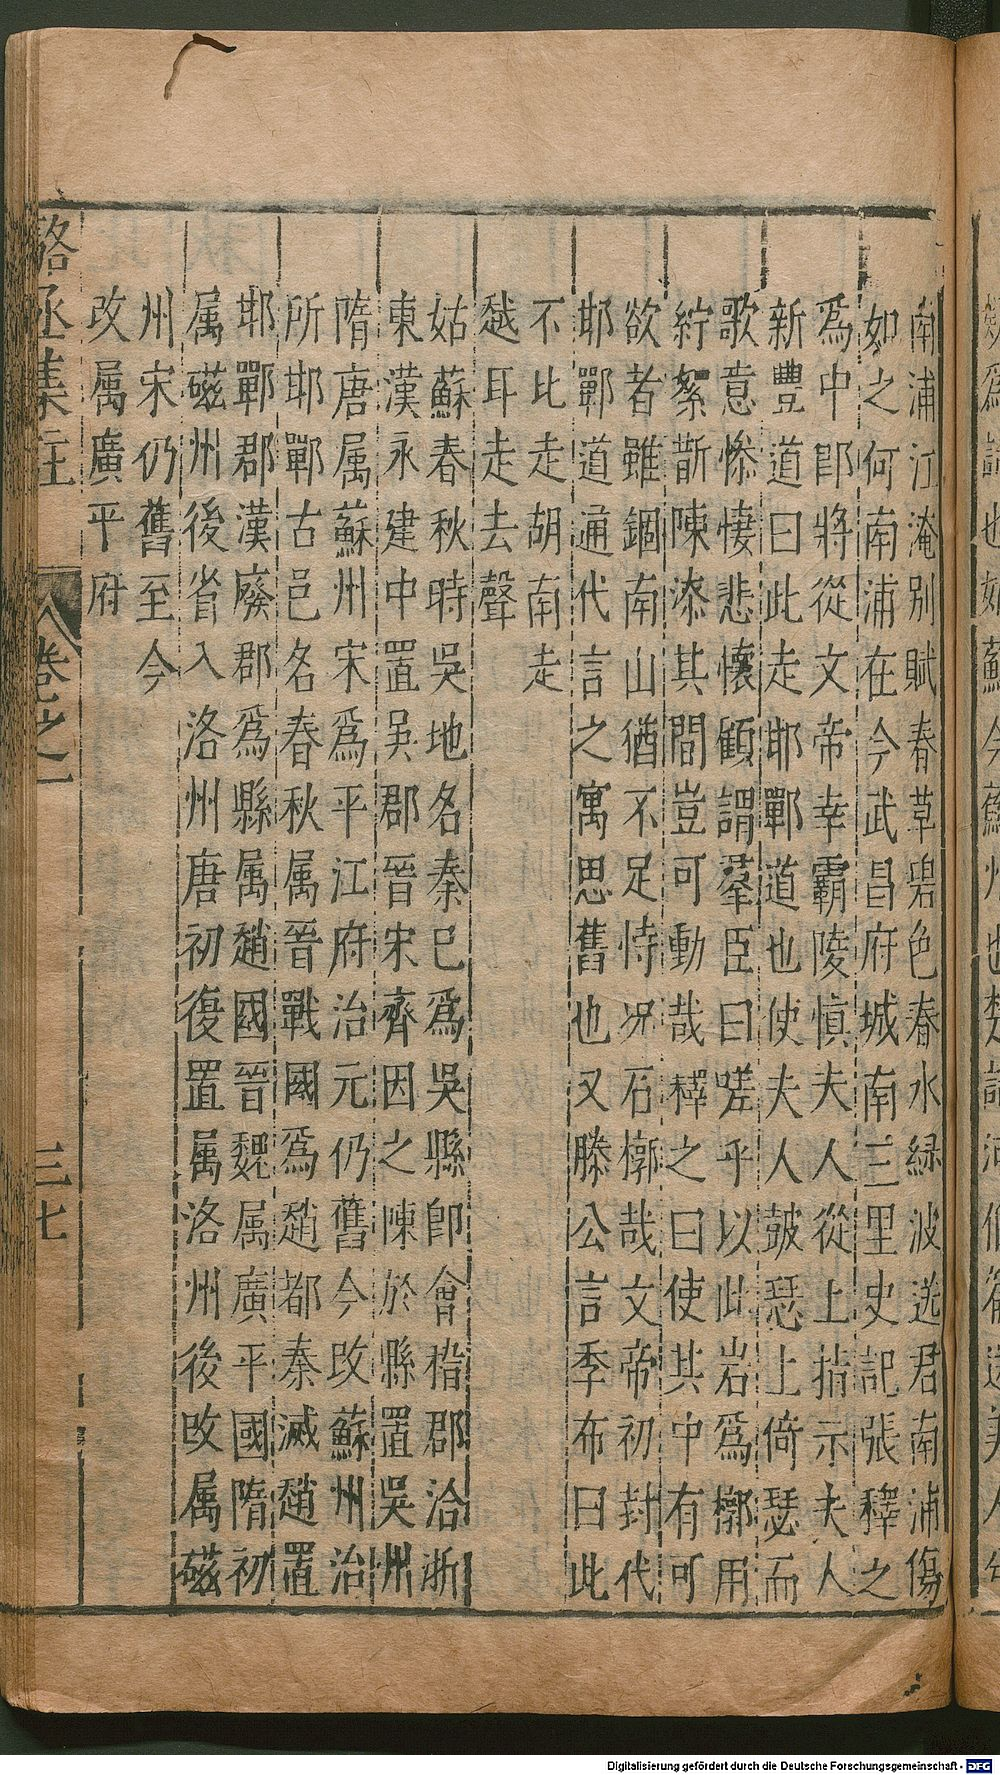 南浦江淹別賦春草碧色春水緑波送君南浦傷
如之何南浦在今武昌府城南三里史記張釋之
爲中郎將從文帝幸霸陵慎夫人從上指示夫人
新豐道曰此走邯鄲道也使夫人皷瑟上倚瑟而
歌意慘悽悲懷顧謂羣臣曰嗟乎以此岩爲槨用
紵絮斮陳漆其間豈可動哉釋之曰使其中有可
欲者雖錮南山猶不足恃况石槨哉文帝初封代
邯鄲道通代言之寓思舊也又滕公言季布曰此
不比走胡南走
越耳走去聲
姑蘇春秋時吳地名秦已爲吳縣卽會稽郡治浙
東漢永建中置吳郡晉宋齊因之陳於縣置吳州
隋唐属蘇州宋爲平江府治元仍舊今改蘇州治
所邯鄲古邑名春秋属晉戰國爲趙都秦滅趙置
邯鄲郡漢廢郡爲縣属趙國晉魏属廣平國隋初
属磁州後省入洛州唐初復置属洛州後改属磁
州宋仍舊至今
改属廣平府
駱丞集註
卷之一
三七
Digitalisierung gefördert durch die Deutsche Forschungsgemeinschaft - DFG